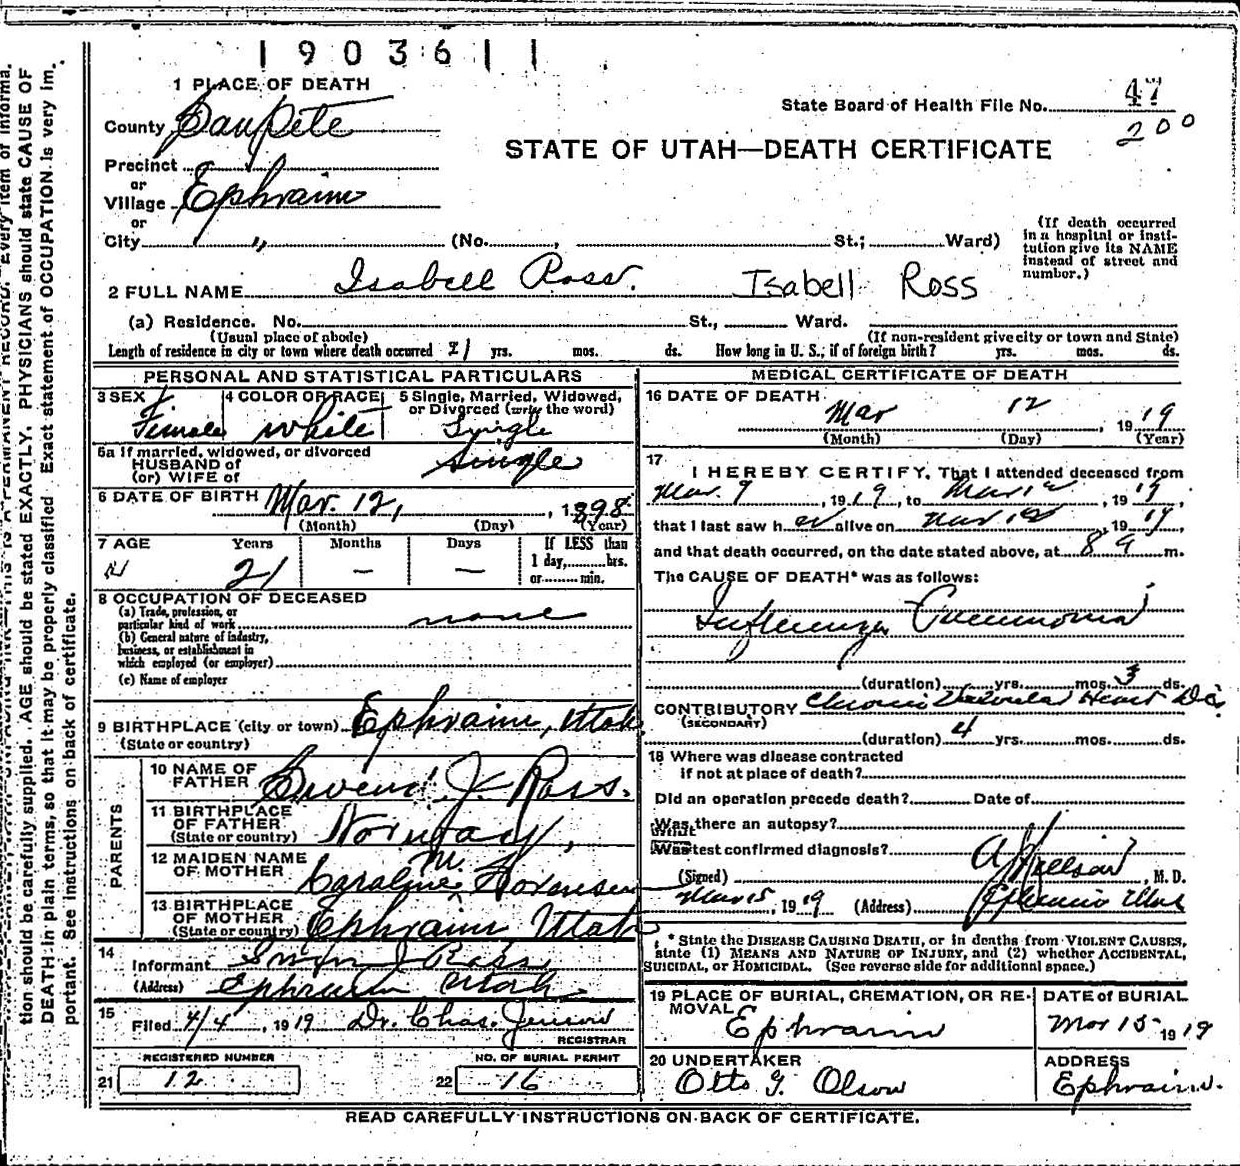 1903611
1 PLACE OF DEATH
State Board of Health File No. 47
200
County SanPete
STATE OF UTAH—DEATH CERTIFICATE
Precinct
or
Village Ephraim
or
City " (No. , St.; Ward)
(If death occurred in a hospital or institution give its NAME instead of street and number.)
2 FULL NAME Isabell Ross. Isabell Ross
(a) Residence. No. St., Ward.
(Usual place of abode) (If non-resident give city or town and State)
Length of residence in city or town where death occurred 21 yrs. mos. ds. How long in U. S.; if of foreign birth? yrs. mos. ds.
PERSONAL AND STATISTICAL PARTICULARS
3 SEX Female
4 COLOR OR RACE White
5 Single, Married, Widowed, or Divorced (write the word) Single
5a If married, widowed, or divorced
HUSBAND of
(or) WIFE of Single
6 DATE OF BIRTH Mar. 12, 1898
(Month) (Day) (Year)
7 AGE Years Months Days If LESS than
21 — — 1 day, hrs.
or min.
8 OCCUPATION OF DECEASED
(a) Trade, profession, or
particular kind of work none
(b) General nature of industry,
business, or establishment in
which employed (or employer)
(c) Name of employer
9 BIRTHPLACE (city or town) Ephraim, Utah
(State or country)
PARENTS
10 NAME OF
FATHER J. Ross.
11 BIRTHPLACE
OF FATHER
(State or country) Norway,
12 MAIDEN NAME
OF MOTHER Caroline M. Sorensen
13 BIRTHPLACE
OF MOTHER
(State or country) Ephraim Utah
14
Informant J Ross
(Address) Ephraim Utah
15
Filed 4/4, 1919 Dr. Chas. Jenson
REGISTRAR
REGISTERED NUMBER NO. OF BURIAL PERMIT
21 12 22 16
MEDICAL CERTIFICATE OF DEATH
16 DATE OF DEATH
Mar 12, 1919
(Month) (Day) (Year)
17
I HEREBY CERTIFY, That I attended deceased from
Mar. 9, 1919, to Mar 12, 1919
that I last saw her alive on Mar 12, 1919
and that death occurred, on the date stated above, at 8 9 m.
The CAUSE OF DEATH* was as follows:
Influenza Pneumonia
(duration) yrs. mos. 3 ds.
CONTRIBUTORY Chronic Valvular Heart Dis.
(SECONDARY)
(duration) 4 yrs. mos. ds.
18 Where was disease contracted
if not at place of death?
Did an operation precede death? Date of
Was there an autopsy?
What test confirmed diagnosis?
(Signed) , M. D.
Mar 15, 1919 (Address) Ephraim Utah
* State the DISEASE CAUSING DEATH, or in deaths from VIOLENT CAUSES,
state (1) MEANS AND NATURE OF INJURY, and (2) whether ACCIDENTAL,
SUICIDAL, or HOMICIDAL. (See reverse side for additional space.)
19 PLACE OF BURIAL, CREMATION, OR REMOVAL
Ephraim
DATE of BURIAL
Mar 15 1919
20 UNDERTAKER
Otto G. Olson
ADDRESS
Ephraim.
READ CAREFULLY INSTRUCTIONS ON BACK OF CERTIFICATE.
Every item of informa-
tion should be carefully supplied. AGE should be stated EXACTLY. PHYSICIANS should state CAUSE OF
DEATH in plain terms, so that it may be properly classified. Exact statement of OCCUPATION is very im-
portant. See instructions on back of certificate.